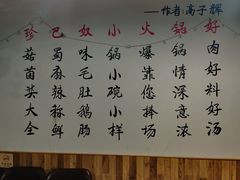 ——作者:高子辉
珍菇菌英大全
巴蜀麻辣稣鲜
奴味毛肚鹅肠
小锅小碗小样
火爆靠您捧场
锅锅情深意浓
好肉好料好汤